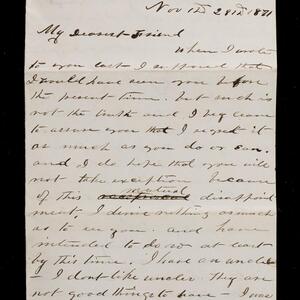 Nov 28th 1871
My Dearest Friend
When I wrote
to you last I supposed that
I would have seen you before
the present time. but such is
not the truth and I beg leave
to assure you that I regret it
as much as you do or can.
and I do hope that you will
not take exception because
of this mutual disappoint
ment. I desire nothing as much
as to see you. and have
intended to do so at least
by this time. I have an uncle
- I dont like uncles they are
not good things to have - I was